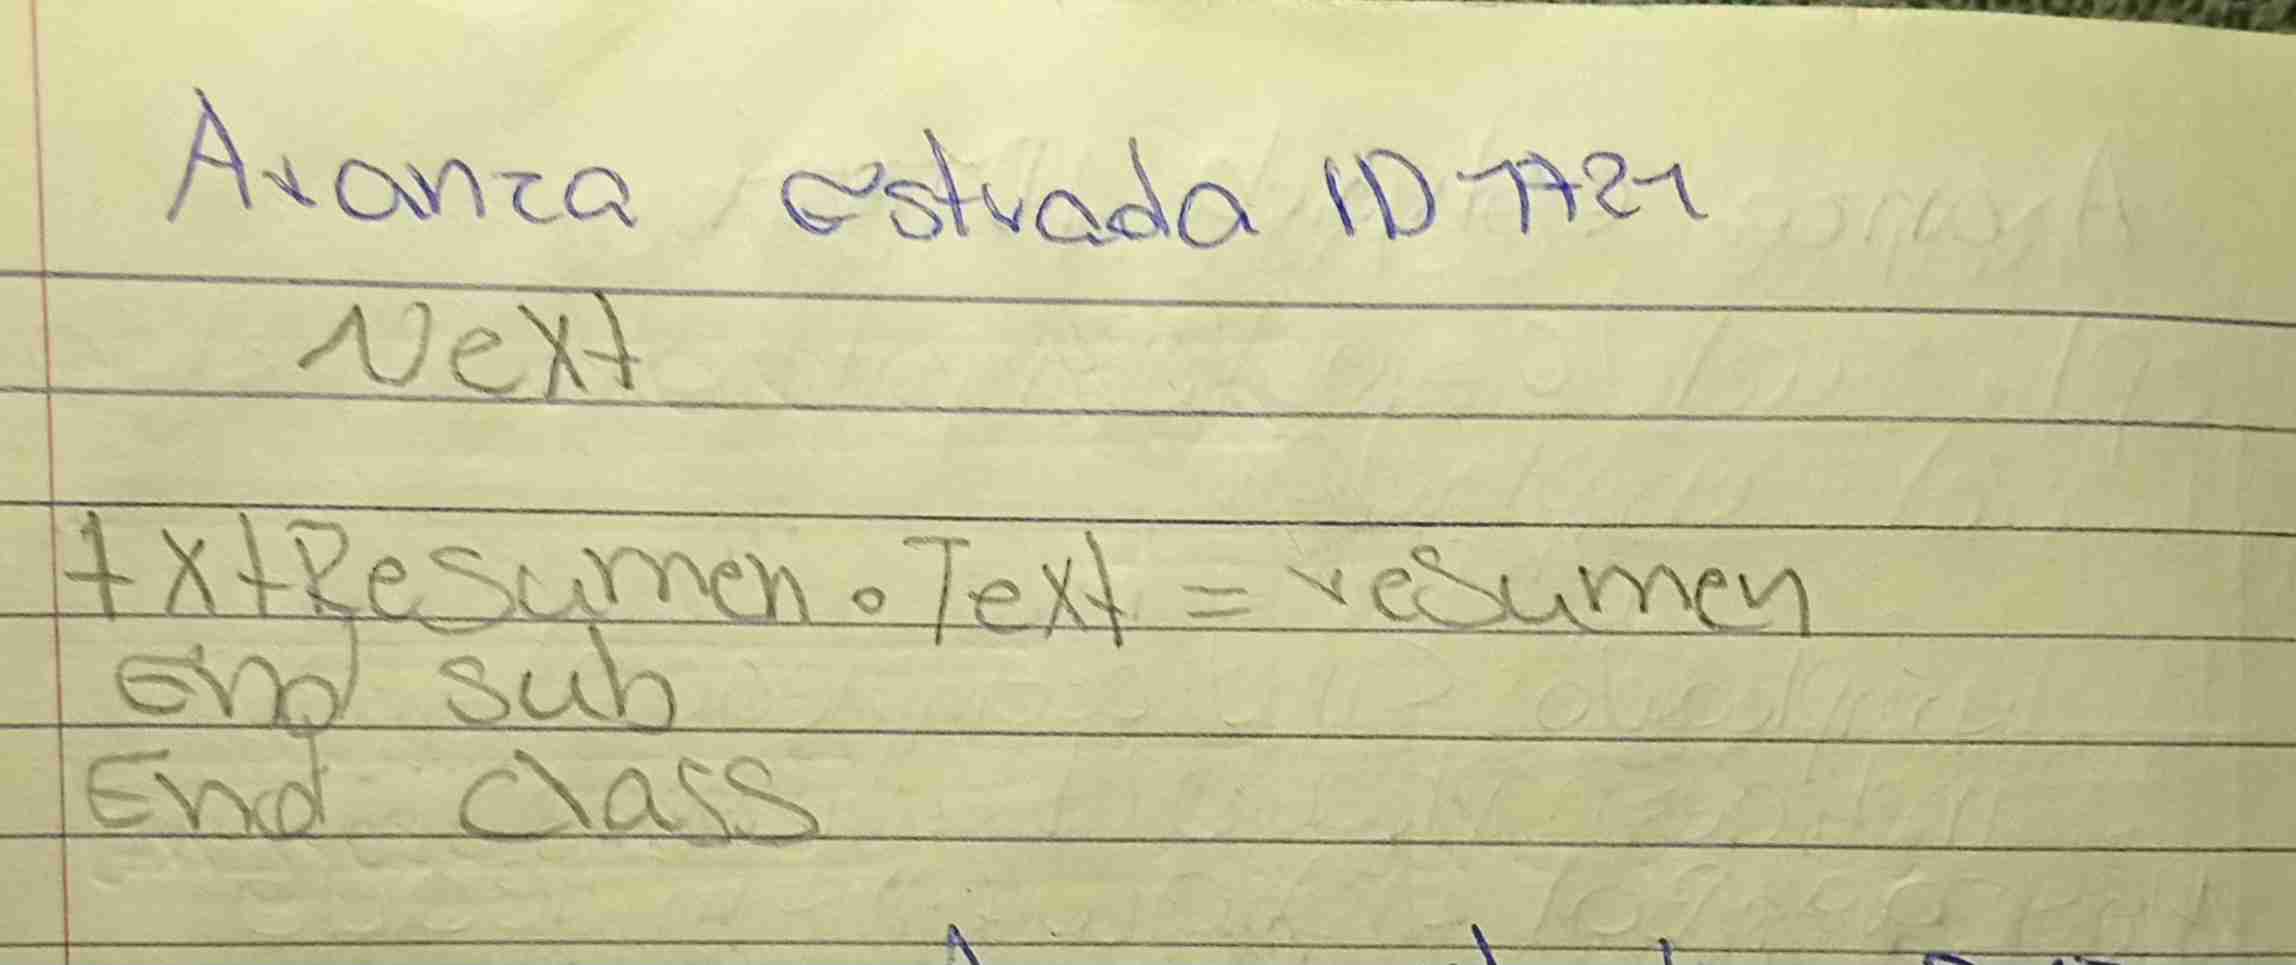 Aranza estrada ID 1721
Next
txtResumen.Text = resumen
End sub
End class